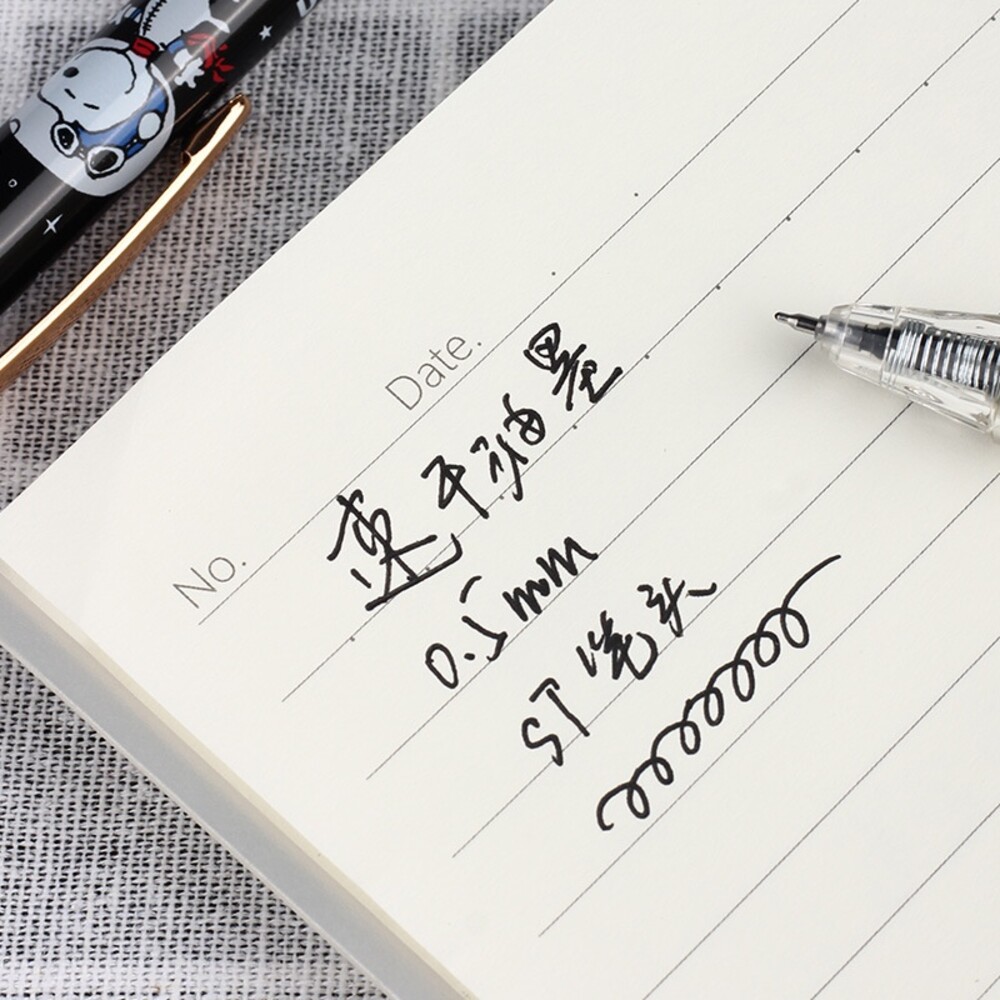 No.
Date.
速干油墨
0.5mm
ST笔头